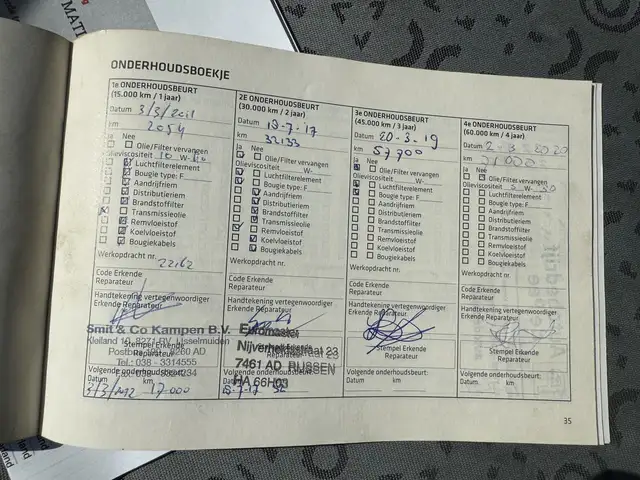 MATI
ONDERHOUDSBOEKJE
1e ONDERHOUDSBEURT
(15.000 km / 1 jaar)
Datum 3/3/2011
km 2054
Ja Nee
Olie/Filter vervangen
Olieviscositeit 10 W-40
Luchtfilterelement
Bougie type: F
Aandrijfriem
Distributieriem
Brandstoffilter
Transmissieolie
Remvloeistof
Koelvloeistof
Bougiekabels
Werkopdracht nr. 22162
Code Erkende
Reparateur
Handtekening vertegenwoordiger
Erkende Reparateur
Smit & Co Kampen B.V.
Stempel Erkende
Reparateur
Tel.: 038 - 3314555
Volgende onderhoudsbeurt:
Datum km
3/3/2012 17000
2E ONDERHOUDSBEURT
(30.000 km / 2 jaar)
Datum 18-7-17
km 32133
Ja Nee
Olie/Filter vervangen
Olieviscositeit W-
Luchtfilterelement
Bougie type: F
Aandrijfriem
Distributieriem
Brandstoffilter
Transmissieolie
Remvloeistof
Koelvloeistof
Bougiekabels
Werkopdracht nr.
Code Erkende
Reparateur
Handtekening vertegenwoordiger
Euromaster
Nijverheidsstraat 23
7461 AD RIJSSEN
HA 66H03
Volgende onderhoudsbeurt:
Datum km
3e ONDERHOUDSBEURT
(45.000 km / 3 jaar)
Datum 20-3-19
km 57700
Ja Nee
Olie/Filter vervangen
Olieviscositeit W-
Luchtfilterelement
Bougie type: F
Aandrijfriem
Distributieriem
Brandstoffilter
Transmissieolie
Remvloeistof
Koelvloeistof
Bougiekabels
Werkopdracht nr.
Code Erkende
Reparateur
Handtekening vertegenwoordiger
Erkende Reparateur
Stempel Erkende
Reparateur
Volgende onderhoudsbeurt:
Datum km
4e ONDERHOUDSBEURT
(60.000 km / 4 jaar)
Datum 2-3-2020
km 71000
Ja Nee
Olie/Filter vervangen
Olieviscositeit 5 W-30
Luchtfilterelement
Bougie type: F
Aandrijfriem
Distributieriem
Brandstoffilter
Transmissieolie
Remvloeistof
Koelvloeistof
Bougiekabels
Werkopdracht nr.
Code Erkende
Reparateur
Handtekening vertegenwoordiger
Erkende Reparateur
Stempel Erkende
Reparateur
Volgende onderhoudsbeurt:
Datum km
35